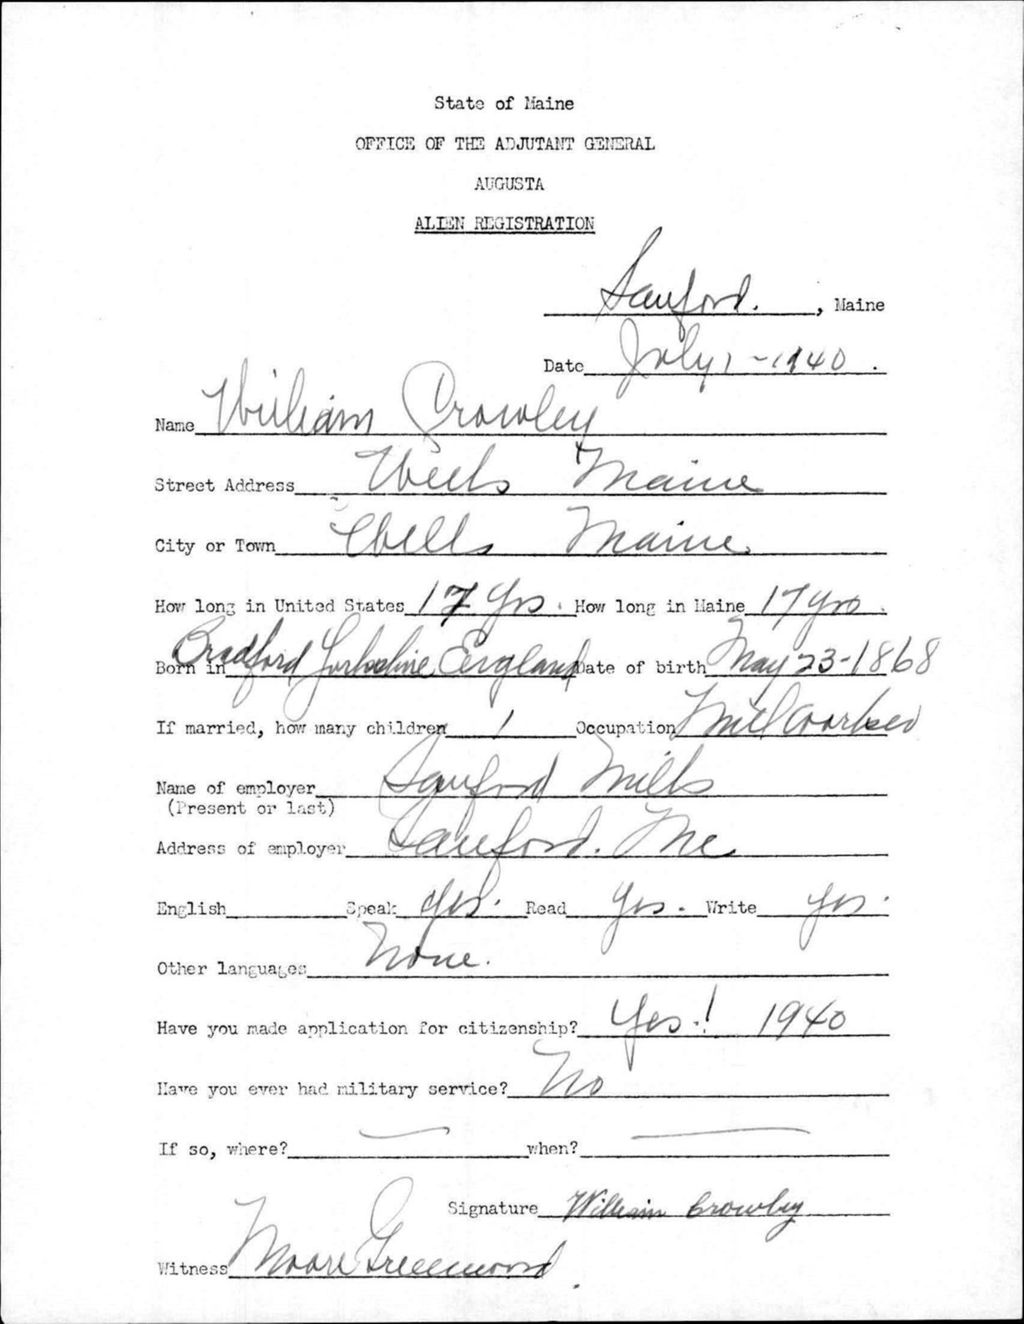 State of Maine
OFFICE OF THE ADJUTANT GENERAL
AUGUSTA
ALIEN REGISTRATION
Sanford. , Maine
Date July 1 - 1940 .
Name William Crowley
Street Address Wells Maine
City or Town Wells Maine.
How long in United States 17 Yrs. How long in Maine 17 yrs.
Born in Bradford Yorkshire, England Date of birth May 23-1868
If married, how many children 1 Occupation Mill Worker
Name of employer Sanford Mills
(Present or last)
Address of employer Sanford. Me
English Speak Yes. Read Yes. Write Yes.
Other languages None.
Have you made application for citizenship? Yes.! 1940
Have you ever had military service? No
If so, where? — when? —
Signature William Crowley
Witness Moore Greenwood